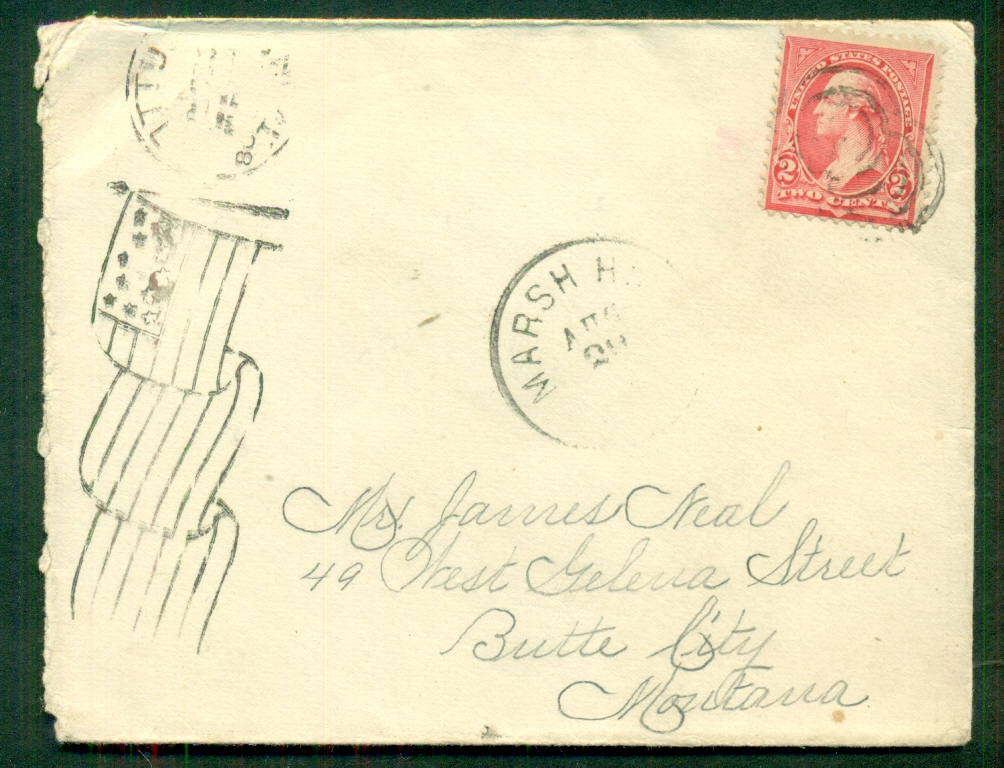 UNITED STATES POSTAGE
2 2
TWO CENTS
MARSH
Mr. James Neal
49 West Galena Street
Butte City
Montana